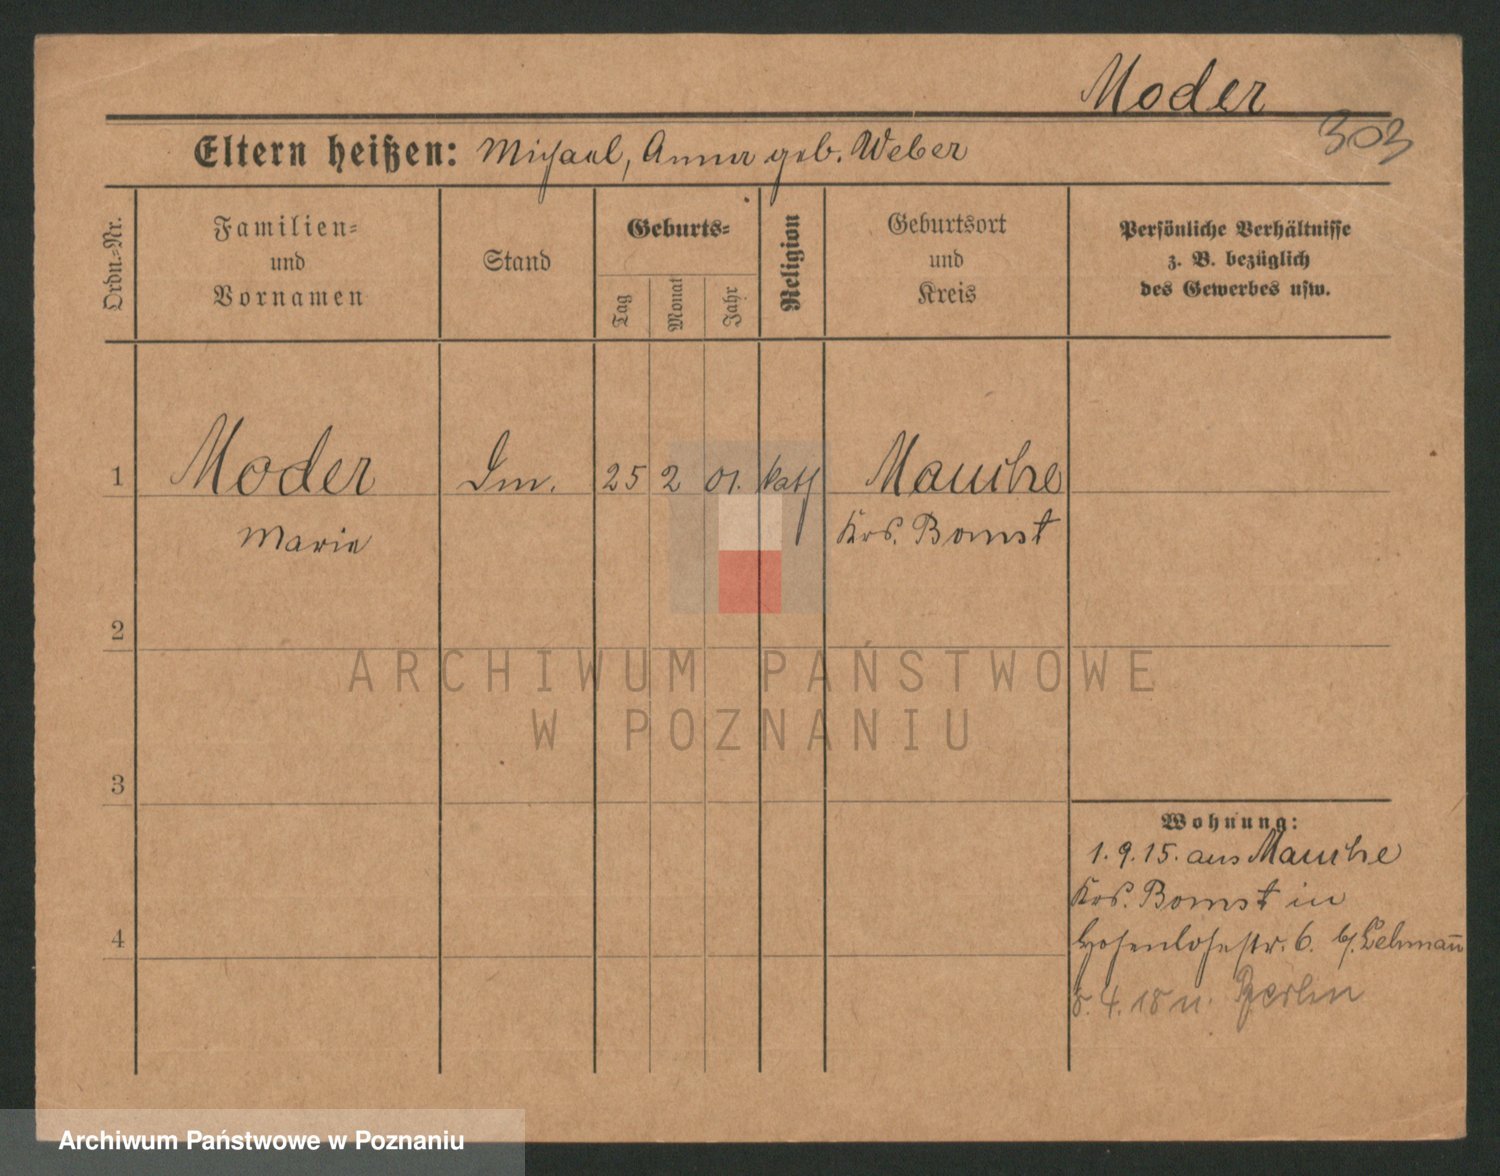 Moder
303
Eltern heißen: Michael, Anna geb. Weber
Ordn.=Nr.
Familien=
und
Vornamen
Stand
Geburts=
Tag
Monat
Jahr
Religion
Geburtsort
und
Kreis
Persönliche Verhältnisse
z. B. bezüglich
des Gewerbes usw.
1 Moder 25 2 01. kath Mauche
Marie Krs. Bomst
2
3
Wohnung:
1.9.15. aus Mauche
Krs. Bomst in
4
Hohenlohestr. 6. b/. Lehmann
8. 4. 18 n. Berlin
ARCHIWUM PAŃSTWOWE
W POZNANIU
Archiwum Państwowe w Poznaniu